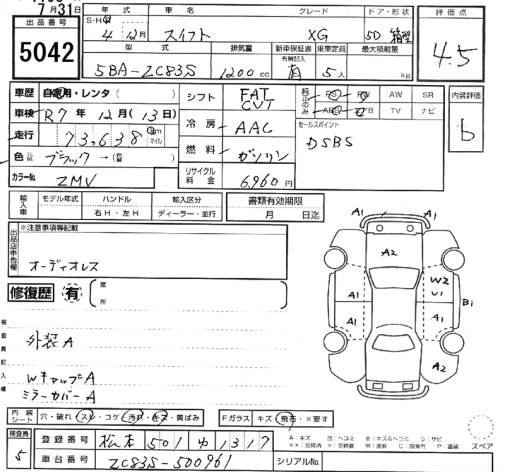 7月31日
出品番号
5042
年式 車名 グレード ドア・形状
S・H・R 4年12月 スイフト XG 5D 箱型
型式 排気量 新車保証書 乗車定員 最大積載量
有無記入
5BA-ZC83S 1200cc 有 5人 kg
評価点
4.5
車歴 自家用・レンタ ( )
車検 R7年12月(13日)
走行 73,638 km マイル
色 ブラック → (色 )
カラーNo. ZMV
シフト FAT CVT
冷房 AAC
燃料 ガソリン
リサイクル料金 6,960円
純正のみ PS PW AW SR
AB TV ナビ
セールスポイント
DSBS
内装評価
b
輸入車 モデル年式 ハンドル 輸入区分
右H・左H ディーラー・並行
書類有効期限
月 日迄
出品店申告欄
※注意事項等記載
オーディオレス
修復歴 有 箇所
検査員記入欄
外装A
WキャップA
ミラーカバーA
A1 A1
A2
A1 W2
U1
B1
A1 A1
A2
スペア
内装シート 穴・破れ スレ・コゲ 汚れ・キズ 黄ばみ
Fガラス キズ 飛石・×要す
検査員
5
登録番号 松本 501 ゆ 1317
車台番号 ZC83S-500961
シリアルNo.